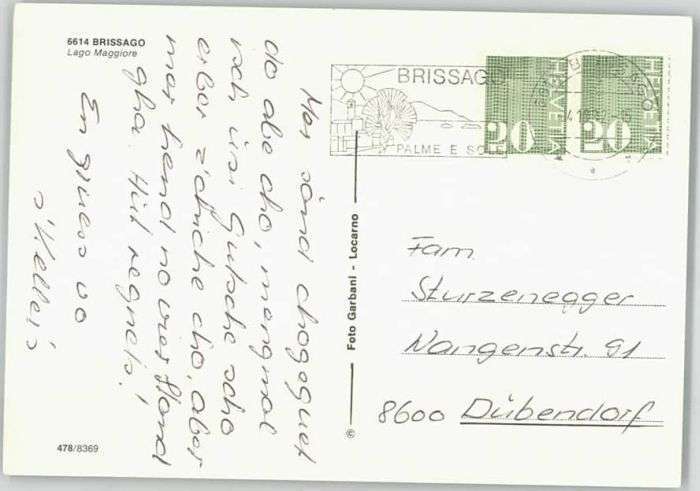 6614 BRISSAGO
Lago Maggiore
Mer sänd chogoguet
do abe cho, mengmol
isch üsi Gutsche scho
zchiche cho, aber
mer hend no vier Hand
gha. Hüt regnets!
En gruess vo
s'Keller's
Foto Garbani - Locarno
©
478/8369
BRISSAGO
PALME E SOLE
HELVETIA
20
HELVETIA
20
Fam.
Sturzenegger
Wangenstr. 91
8600 Dübendorf